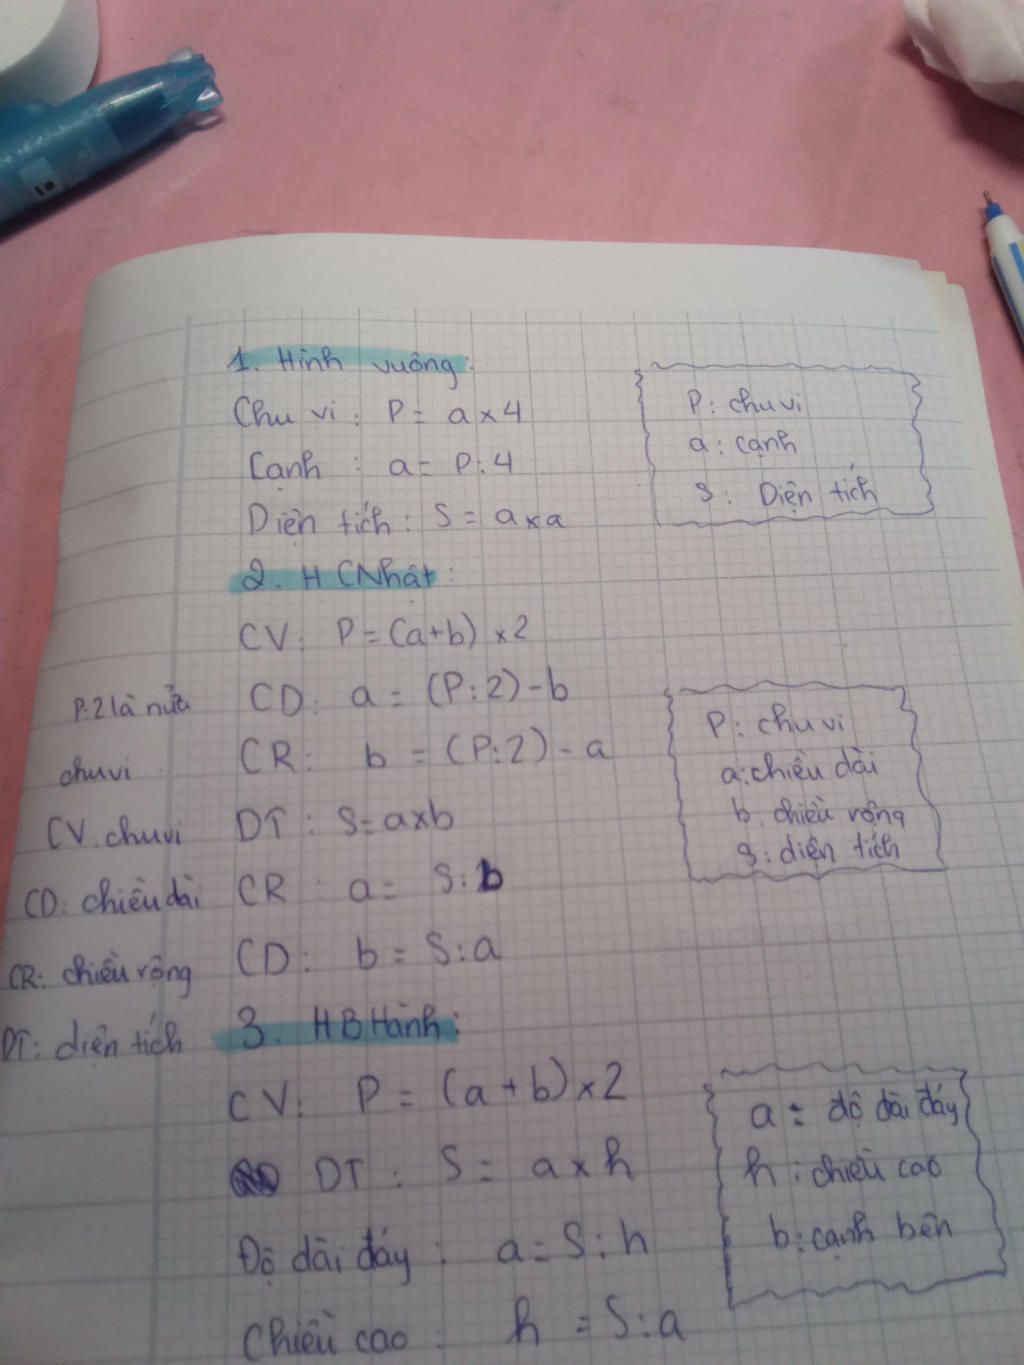 1. Hình vuông:
Chu vi: P = a x 4
Cạnh : a = P:4
Diện tích: S = a x a
P: chu vi
a: cạnh
S: Diện tích
2. HCNhật:
CV: P = (a+b) x 2
CD: a = (P:2) - b
CR: b = (P:2) - a
DT : S = axb
CR : a = S:b
CD: b = S:a
P:2 là nửa
chu vi
CV. chu vi
CD: chiều dài
CR: chiều rộng
DT: diện tích
P: chu vi
a: chiều dài
b: chiều rộng
S: diện tích
3. HBHành:
CV: P = (a + b) x 2
DT : S = a x h
Độ dài đáy : a = S : h
Chiều cao : h = S:a
a : độ dài đáy
h : chiều cao
b: cạnh bên